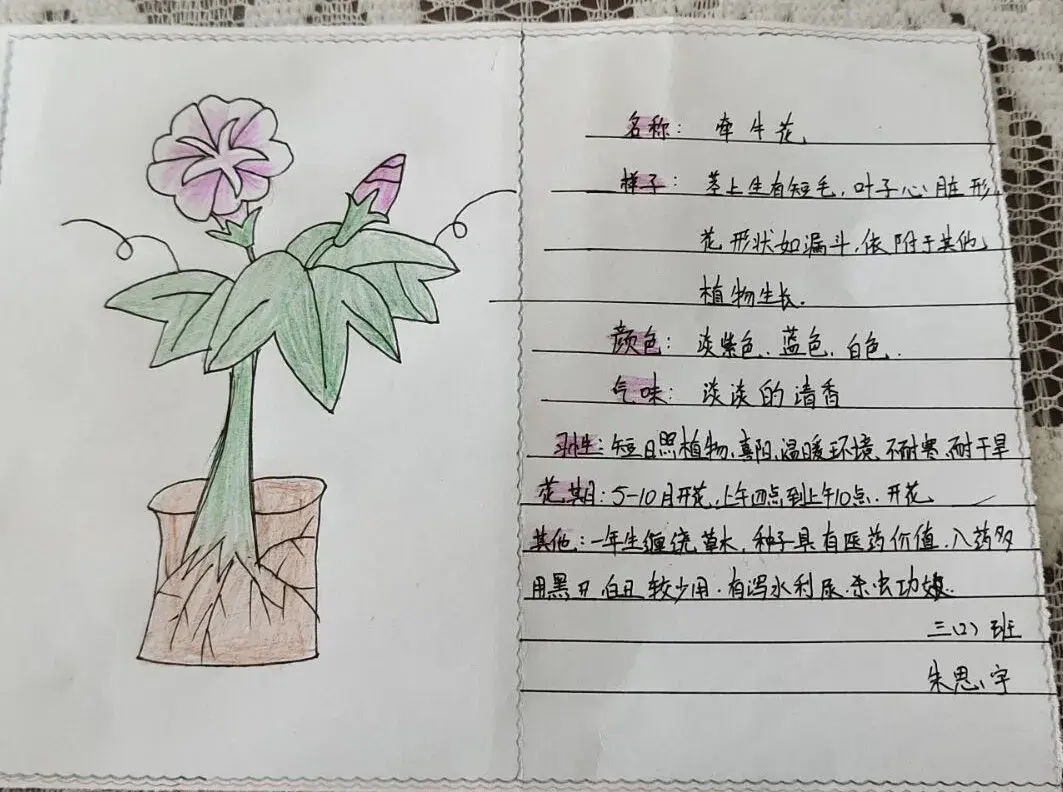 名称：牵牛花
样子：茎上生有短毛，叶子心脏形，
花形状如漏斗，依附于其他
植物生长．
颜色：淡紫色、蓝色、白色．
气味：淡淡的清香
习性：短日照植物、喜阳、温暖环境、不耐寒、耐干旱
花期：5-10月开花，上午四点到上午10点．开花
其他：一年生缠绕草木，种子具有医药价值．入药多
用黑丑白丑较少用．有泻水利尿．杀虫功效．
三（2）班
朱思宇